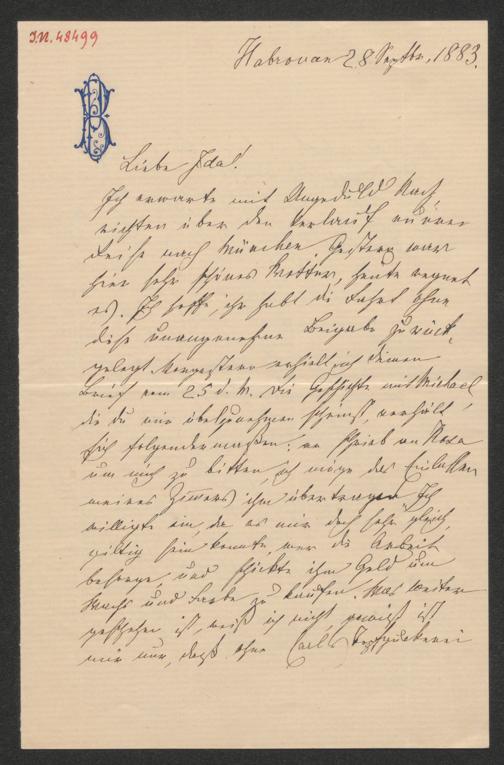 I.N. 48499
Habrovan 28 Septbr. 1883.
B
Liebe Ida!
Ich erwarte mit Ungeduld Nach
richten über den Verlauf eurer
Reise nach München. Gestern war
hier sehr schönes Wetter, heute regnet
es. Ich hoffe, ihr habt die Fahrt ohne
diese unangenehme Beigabe zurück
gelegt. Vorgestern erhielt ich deinen
Brief vom 25 d. M. Die Geschichte mit Michael
die du mir übelzunehmen scheinst, verhält
sich folgendermaßen: er schrieb an
um mich zu bitten, ich möge das Einlassen
meines Zimmers ihm übertragen. Ich
willigte ein, da es mir doch sehr gleich
giltig sein konnte, wer die Arbeit
besorge, und schickte ihm Geld um
Wachs und Farbe zu kaufen. Was weiter
geschehen ist, weiß ich nicht, gewiß ist
mir nur, daß ohne Carls